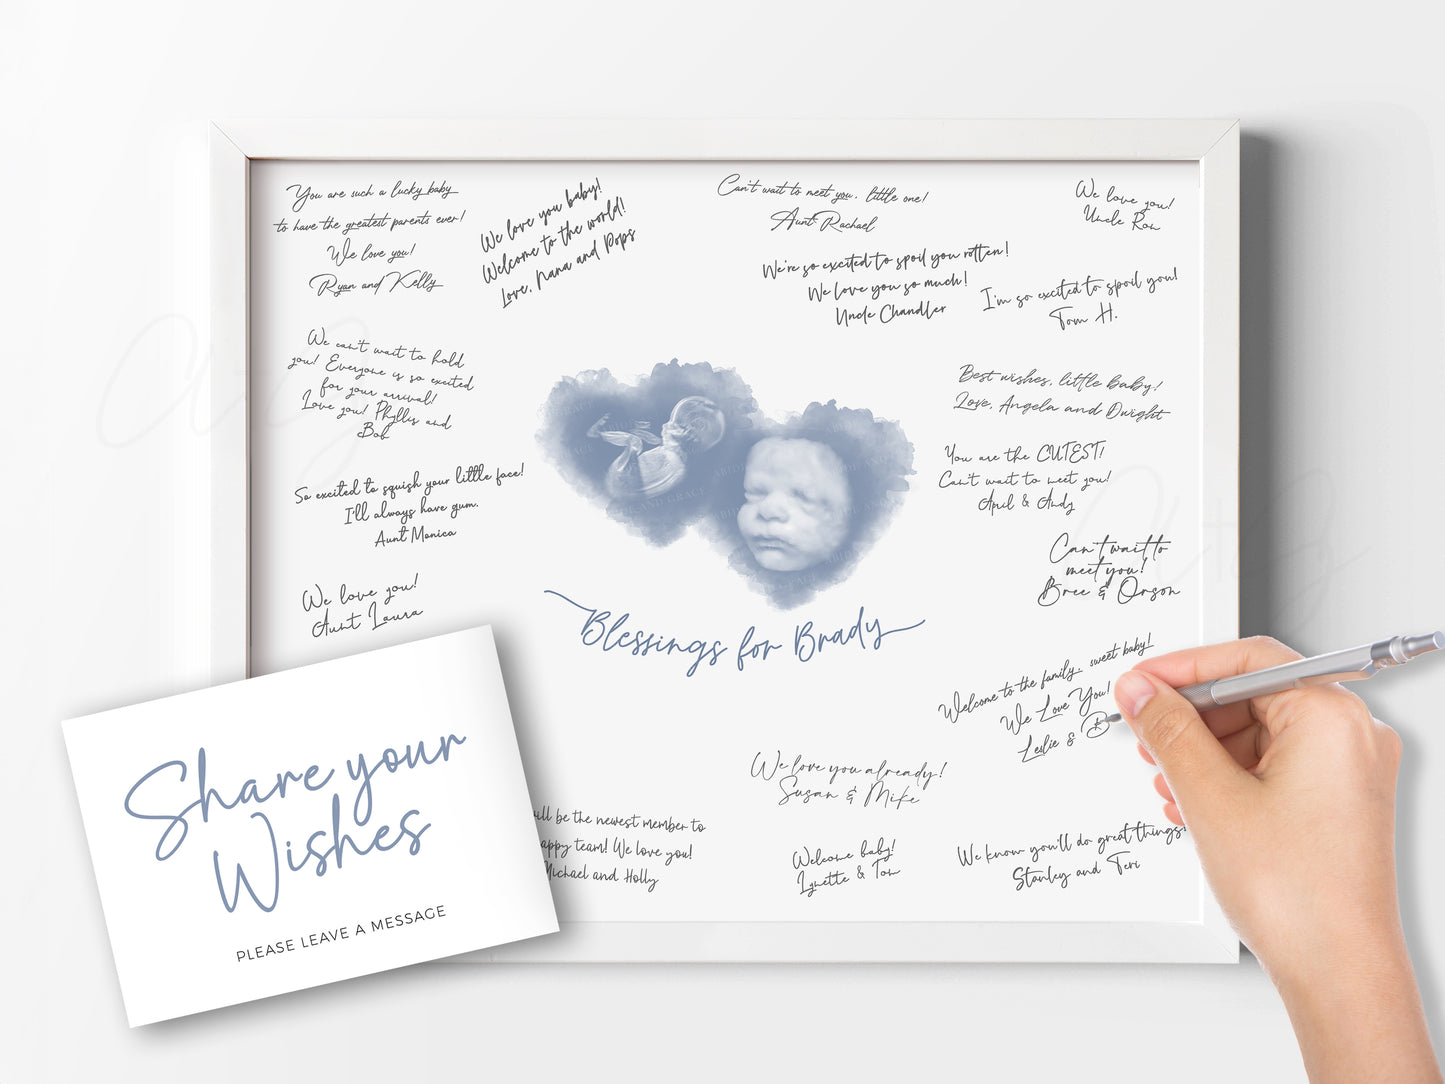 You are such a lucky baby
to have the greatest parents ever!
We love you!
Ryan and Kelly
We love you baby!
Welcome to the world!
Love, Nana and Pops
Can't wait to meet you, little one!
Aunt Rachael
We love you!
Uncle Ron
We're so excited to spoil you rotten!
We love you so much!
Uncle Chandler
I'm so excited to spoil you!
Tom H.
We can't wait to hold
you! Everyone is so excited
for your arrival!
Love you! Phyllis and
Bob
Best wishes, little baby!
Love, Angela and Dwight
You are the CUTEST!
Can't wait to meet you!
April & Andy
So excited to squish your little face!
I'll always have gum.
Aunt Monica
Can't wait to
meet you!
Bree & Orson
We love you!
Aunt Laura
Blessings for Brady
Welcome to the family, sweet baby!
We Love You!
Leslie & B
Share your
Wishes
PLEASE LEAVE A MESSAGE
We love you already!
Susan & Mike
be the newest member to
team! We love you!
and Holly
Welcome baby!
Lynette & Tom
We know you'll do great things!
Stanley and Teri
ABIDE AND GRACE